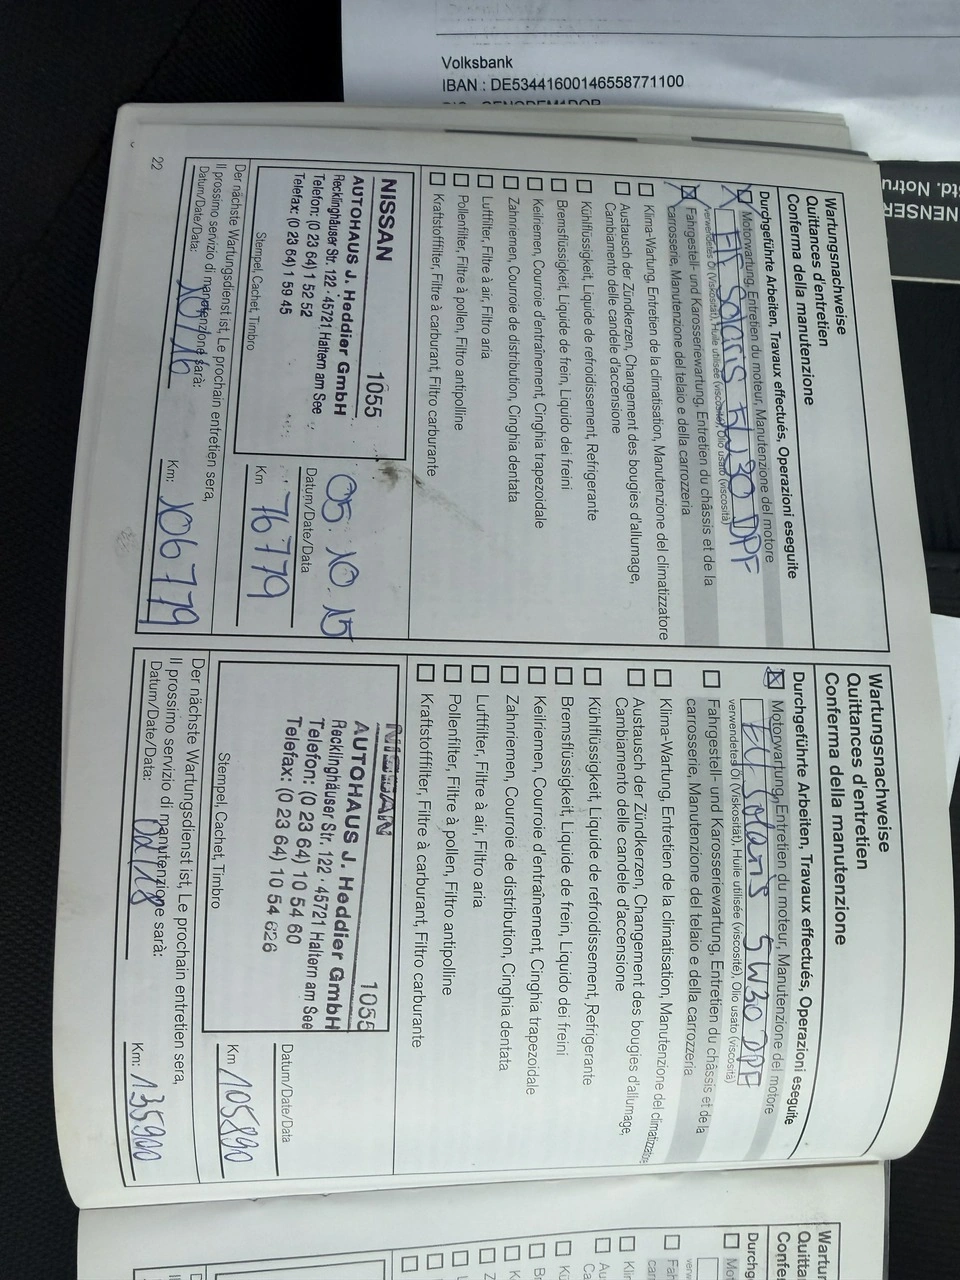 Volksbank
IBAN : DE53441600146558771100
Wartungsnachweise
Quittances d'entretien
Conferma della manutenzione
Durchgeführte Arbeiten, Travaux effectués, Operazioni eseguite
Motorwartung, Entretien du moteur, Manutenzione del motore
Elf Solaris 5W30 DPF
verwendetes Öl (Viskosität), Huile utilisée (viscosité), Olio usato (viscosità)
Fahrgestell- und Karosseriewartung, Entretien du châssis et de la
carrosserie, Manutenzione del telaio e della carrozzeria
Klima-Wartung, Entretien de la climatisation, Manutenzione del climatizzatore
Austausch der Zündkerzen, Changement des bougies d'allumage,
Cambiamento delle candele d'accensione
Kühlflüssigkeit, Liquide de refroidissement, Refrigerante
Bremsflüssigkeit, Liquide de frein, Liquido dei freini
Keilriemen, Courroie d'entraînement, Cinghia trapezoidale
Zahnriemen, Courroie de distribution, Cinghia dentata
Luftfilter, Filtre à air, Filtro aria
Pollenfilter, Filtre à pollen, Filtro antipolline
Kraftstofffilter, Filtre à carburant, Filtro carburante
NISSAN 1055
AUTOHAUS J. Heddier GmbH
Recklinghäuser Str. 122 · 45721 Haltern am See
Telefon: (0 23 64) 1 52 52
Telefax: (0 23 64) 1 59 45
Stempel, Cachet, Timbro
05.10.15
Datum/Date/Data
76779
Km
Der nächste Wartungsdienst ist, Le prochain entretien sera,
Il prossimo servizio di manutenzione sarà:
Datum/Date/Data: 10/16
Km: 106779
22
Wartungsnachweise
Quittances d'entretien
Conferma della manutenzione
Durchgeführte Arbeiten, Travaux effectués, Operazioni eseguite
Motorwartung, Entretien du moteur, Manutenzione del motore
Elf Solaris 5W30 DPF
verwendetes Öl (Viskosität), Huile utilisée (viscosité), Olio usato (viscosità)
Fahrgestell- und Karosseriewartung, Entretien du châssis et de la
carrosserie, Manutenzione del telaio e della carrozzeria
Klima-Wartung, Entretien de la climatisation, Manutenzione del climatizzatore
Austausch der Zündkerzen, Changement des bougies d'allumage,
Cambiamento delle candele d'accensione
Kühlflüssigkeit, Liquide de refroidissement, Refrigerante
Bremsflüssigkeit, Liquide de frein, Liquido dei freini
Keilriemen, Courroie d'entraînement, Cinghia trapezoidale
Zahnriemen, Courroie de distribution, Cinghia dentata
Luftfilter, Filtre à air, Filtro aria
Pollenfilter, Filtre à pollen, Filtro antipolline
Kraftstofffilter, Filtre à carburant, Filtro carburante
NISSAN 1055
AUTOHAUS J. Heddier GmbH
Recklinghäuser Str. 122 · 45721 Haltern am See
Telefon: (0 23 64) 10 54 60
Telefax: (0 23 64) 10 54 626
Stempel, Cachet, Timbro
Datum/Date/Data
Km 105890
Der nächste Wartungsdienst ist, Le prochain entretien sera,
Il prossimo servizio di manutenzione sarà:
Datum/Date/Data: 02/18
Km: 135900